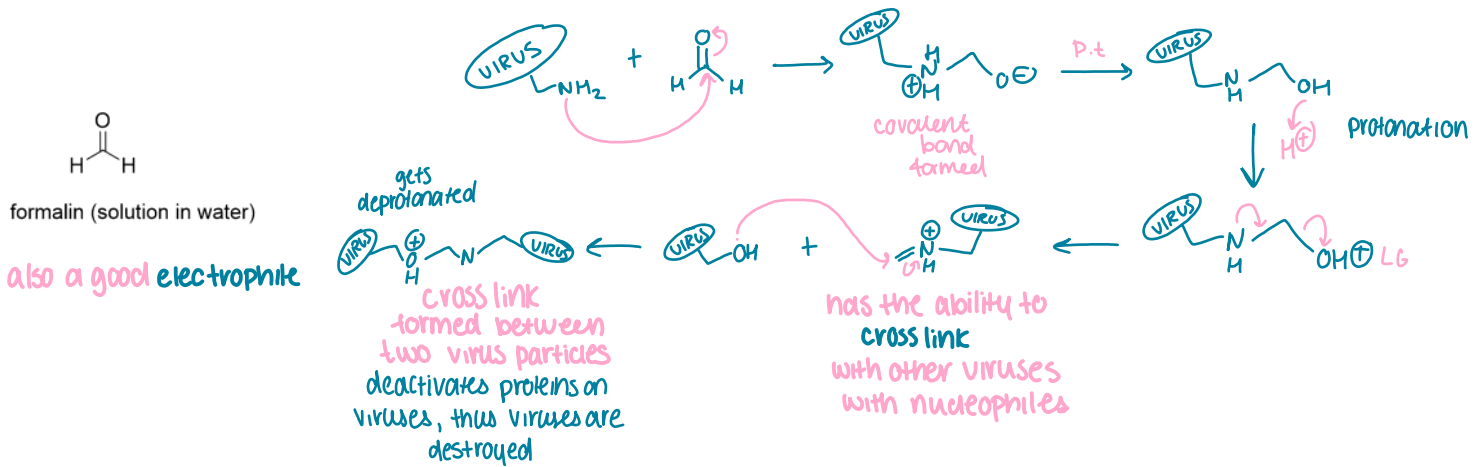 O
H H
formalin (solution in water)
also a good electrophile
VIRUS
NH2
+
O
H H
VIRUS
H
N
⊕H
O⊖
covalent
bond
formed
p.t
VIRUS
N
H
OH
H⊕
protonation
VIRUS
N
H
OH⊕ LG
VIRUS
⊕
N
H
has the ability to
cross link
with other viruses
with nucleophiles
+
VIRUS
OH
gets
deprotonated
VIRUS
⊕
O
H
N
VIRUS
cross link
formed between
two virus particles
deactivates proteins on
viruses, thus viruses are
destroyed